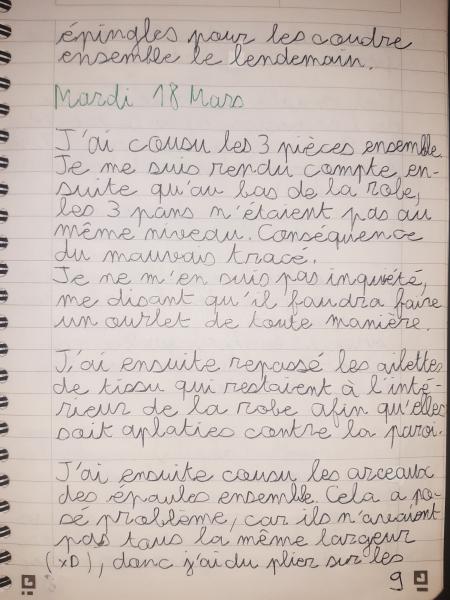 épingles pour les coudre
ensemble le lendemain.
Mardi 18 Mars
J'ai cousu les 3 pièces ensemble.
Je me suis rendu compte en-
suite qu'au bas de la robe,
les 3 pans n'étaient pas au
même niveau. Conséquence
du mauvais tracé.
Je ne m'en suis pas inquiété,
me disant qu'il faudra faire
un ourlet de toute manière.
J'ai ensuite repassé les ailettes
de tissu qui restaient à l'inté-
rieur de la robe afin qu'elles
soit aplaties contre la paroi.
J'ai ensuite cousu les arceaux
des épaules ensemble. Cela a po-
sé problème, car ils n'avaient
pas tous la même largeur
(xD), donc j'ai du plier sur les
9